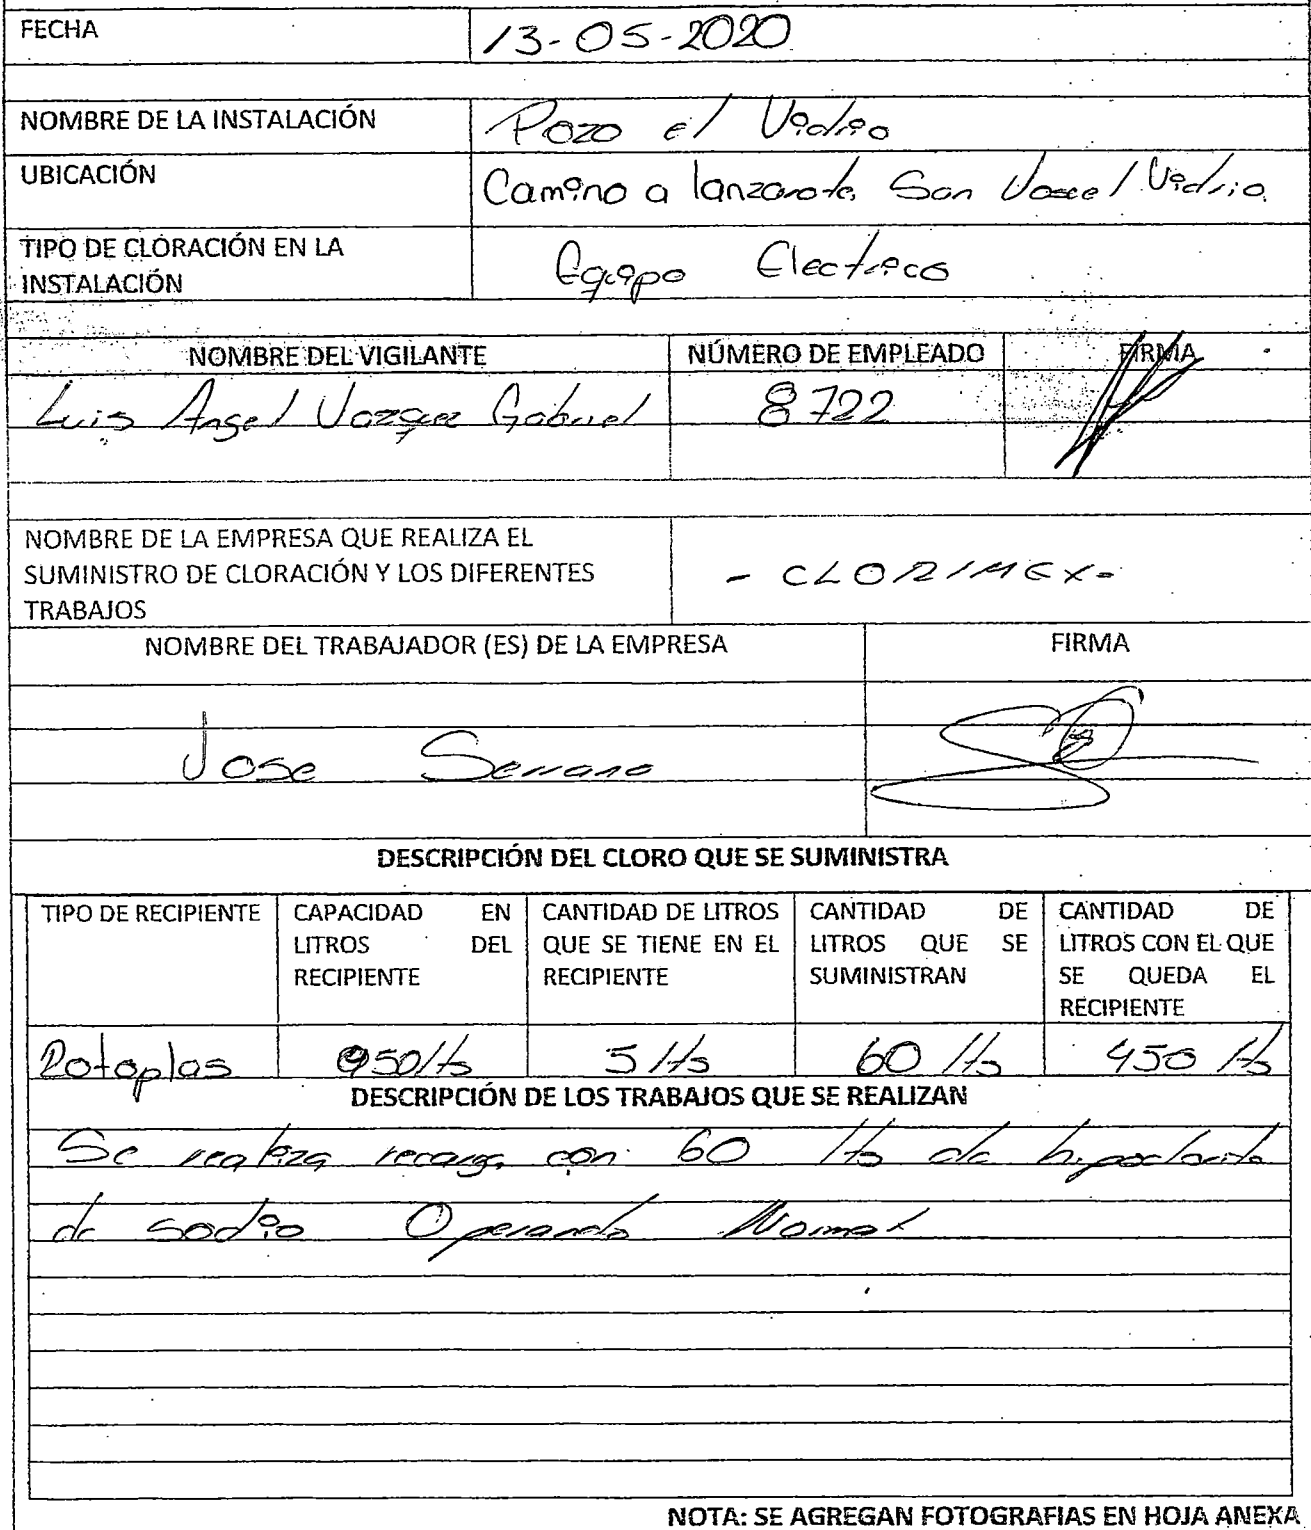 FECHA 13-05-2020
NOMBRE DE LA INSTALACIÓN Pozo el Vidrio
UBICACIÓN Camino a lanzarote San Jose el Vidrio
TIPO DE CLORACIÓN EN LA
INSTALACIÓN Equipo Electrico
NOMBRE DEL VIGILANTE NÚMERO DE EMPLEADO FIRMA
Luis Angel Vazquez Gabriel 8722
NOMBRE DE LA EMPRESA QUE REALIZA EL
SUMINISTRO DE CLORACIÓN Y LOS DIFERENTES
TRABAJOS
- CLORIMEX-
NOMBRE DEL TRABAJADOR (ES) DE LA EMPRESA FIRMA
Jose Serrano
DESCRIPCIÓN DEL CLORO QUE SE SUMINISTRA
TIPO DE RECIPIENTE
CAPACIDAD EN
LITROS DEL
RECIPIENTE
CANTIDAD DE LITROS
QUE SE TIENE EN EL
RECIPIENTE
CANTIDAD DE
LITROS QUE SE
SUMINISTRAN
CANTIDAD DE
LITROS CON EL QUE
SE QUEDA EL
RECIPIENTE
Rotoplas 950 lts 5 lts 60 lts 450 lts
DESCRIPCIÓN DE LOS TRABAJOS QUE SE REALIZAN
Se realiza recarga con 60 lts de hipoclorito
de sodio Operando Normal
NOTA: SE AGREGAN FOTOGRAFIAS EN HOJA ANEXA